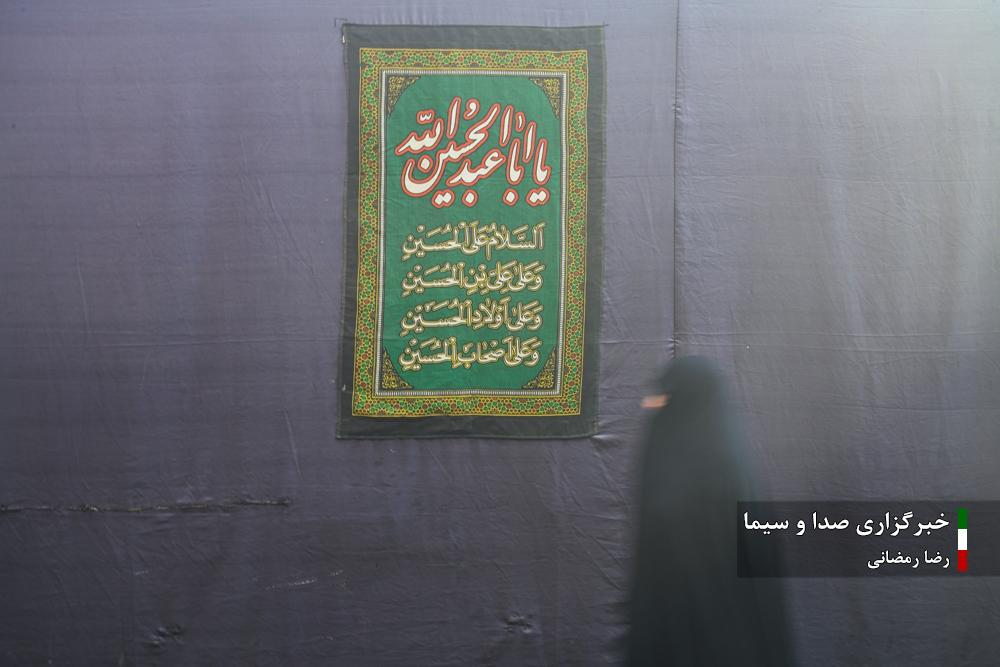 یا اباعبدالحسین الله
اَلسَّلامُ عَلَی الْحُسَیْنِ
وَعَلیٰ عَلِیِّ بْنِ الْحُسَیْنِ
وَعَلیٰ اَوْلادِ الْحُسَیْنِ
وَعَلیٰ اَصْحابِ الْحُسَیْنِ
خبرگزاری صدا و سیما
رضا رمضانی